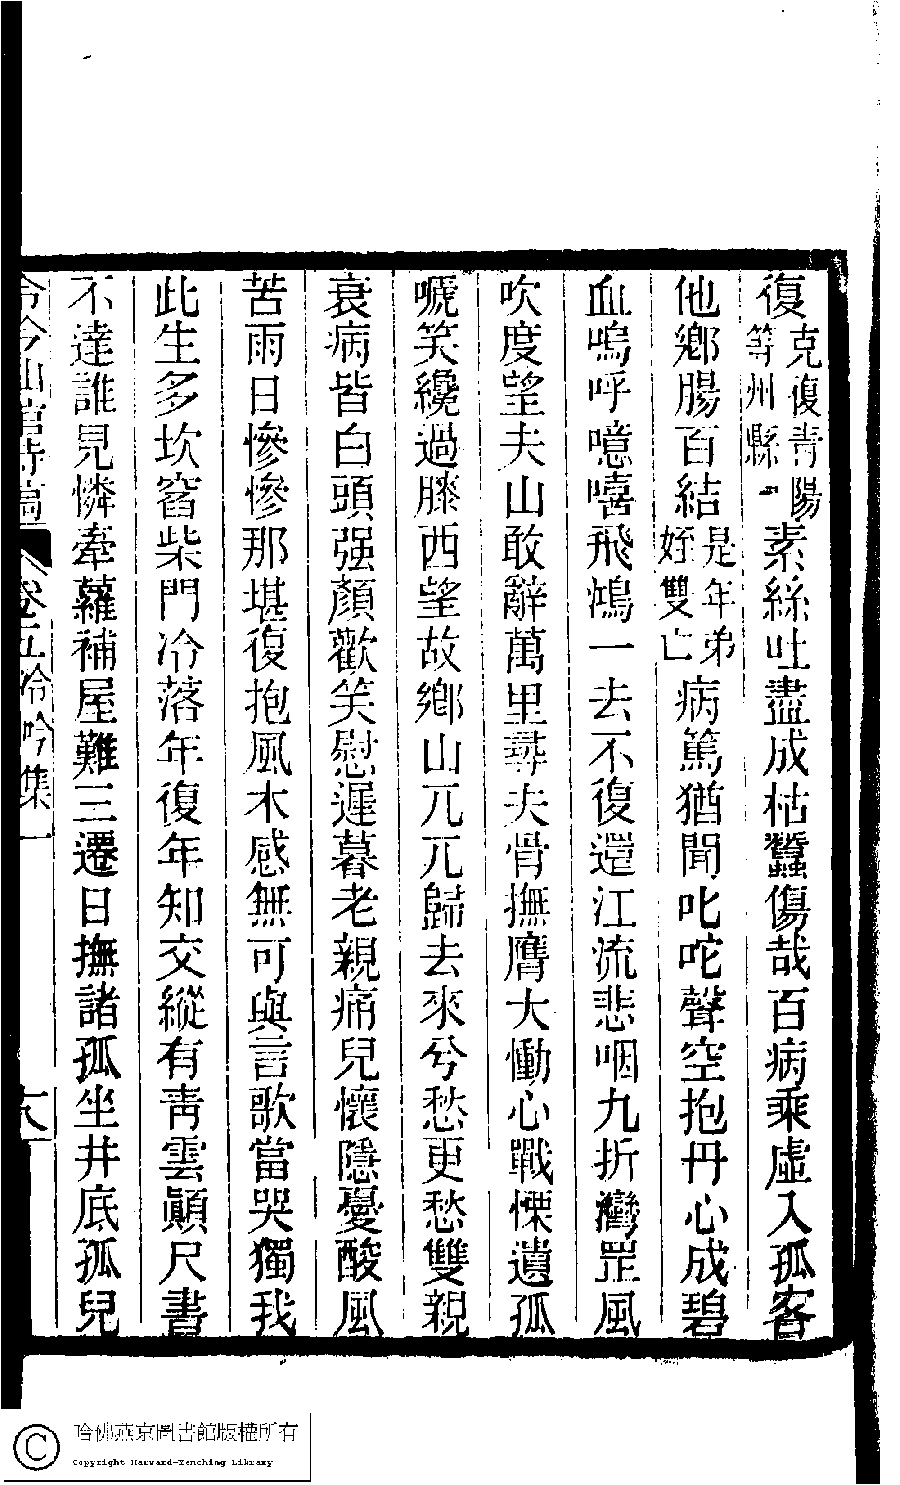 復克復青陽等州縣一素絲吐盡成枯蠶傷哉百病乘虛入孤客
他鄉腸百結是年弟姪雙亡病篤猶聞叱咤聲空抱丹心成碧
血嗚呼噫嘻飛鴻一去不復還江流悲咽九折灣罡風
吹度望夫山敢辭萬里尋夫骨撫膺大慟心戰慄遺孤
嗁笑纔過膝西望故鄉山兀兀歸去來兮愁更愁雙親
衰病皆白頭强顏歡笑慰遲暮老親痛兒懷隱憂酸風
苦雨日慘慘那堪復抱風木感無可與言歌當哭獨我
此生多坎窞柴門冷落年復年知交縱有青雲顛尺書
不達誰見憐牽蘿補屋難三遷日撫諸孤坐井底孤兒
今今山館詩稿 卷五冷吟集一 六
哈佛燕京圖書館版權所有
Copyright Harvard-Yenching Library